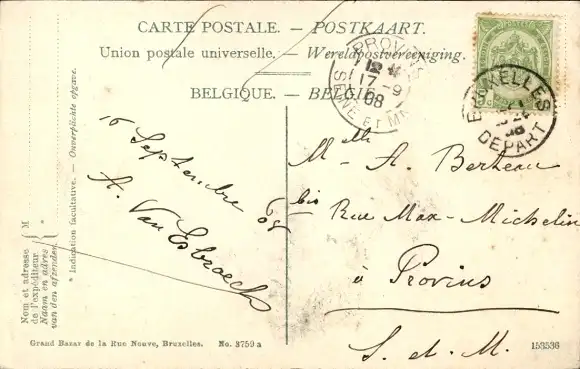 CARTE POSTALE. — POSTKAART.
Union postale universelle. — Wereldpostvereeniging.
BELGIQUE. — BELGIE
PROVINS
12
17 - 9
08
SEINE ET MNE
BRUXELLES
DEPART
16 Septembre 08
A. Van Esbroeck
Melle A. Berteau
bis Rue Max-Michelin
à Provins
S. et M.
Nom et adresse
de l'expéditeur
Naam en adres
van den afzender
M
*
* Indication facultative. — Onverplichte opgave.
Grand Bazar de la Rue Neuve, Bruxelles. No. 3759 a
153536